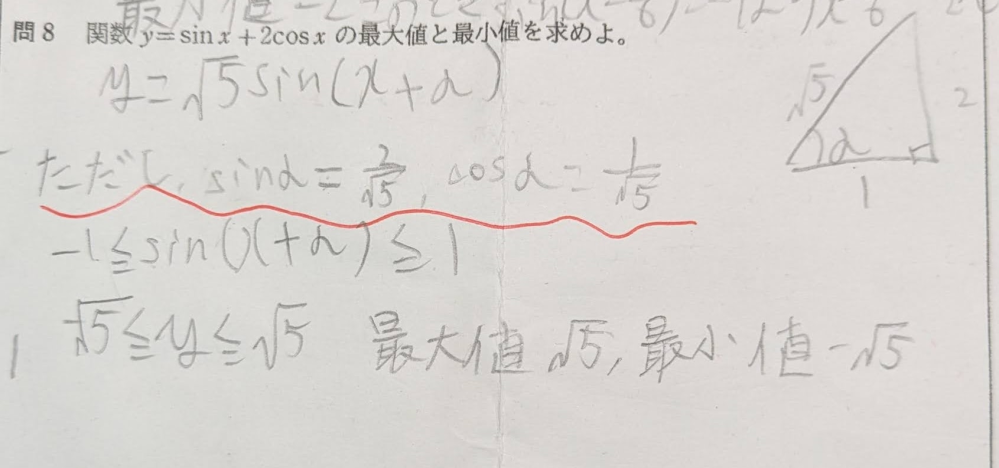 問8 関数 y=sin x+2cos x の最大値と最小値を求めよ。
y=√5sin(x+α)
ただし, sinα=2/√5, cosα=1/√5
-1≦sin(x+α)≦1
-√5≦y≦√5 最大値√5, 最小値-√5
√5
2
α
1